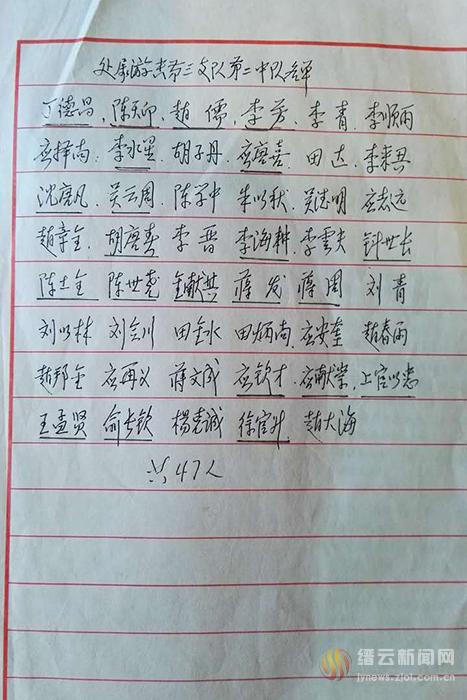 处属游击第三支队第二中队名单
丁德昌 陈天卯 赵儒 李芳 李青 李顺炳
应择尚 李水星 胡子丹 应唐喜 田达 李来具
沈唐凡 吴云周 陈子中 朱以秋 吴志明 应志远
赵章金 胡唐寿 李晋 李海耕 李云夫 钭世长
陈土金 陈世尧 金献其 蒋发 蒋周 刘青
刘以林 刘会川 田金水 田炳尚 应安奎 赵春雨
赵邦金 应再义 蒋文成 应钦才 应献荣 上官以忠
王孟贤 俞长钦 杨克诚 徐官升 赵大海
共47人
缙云新闻网
jynews.zjol.com.cn